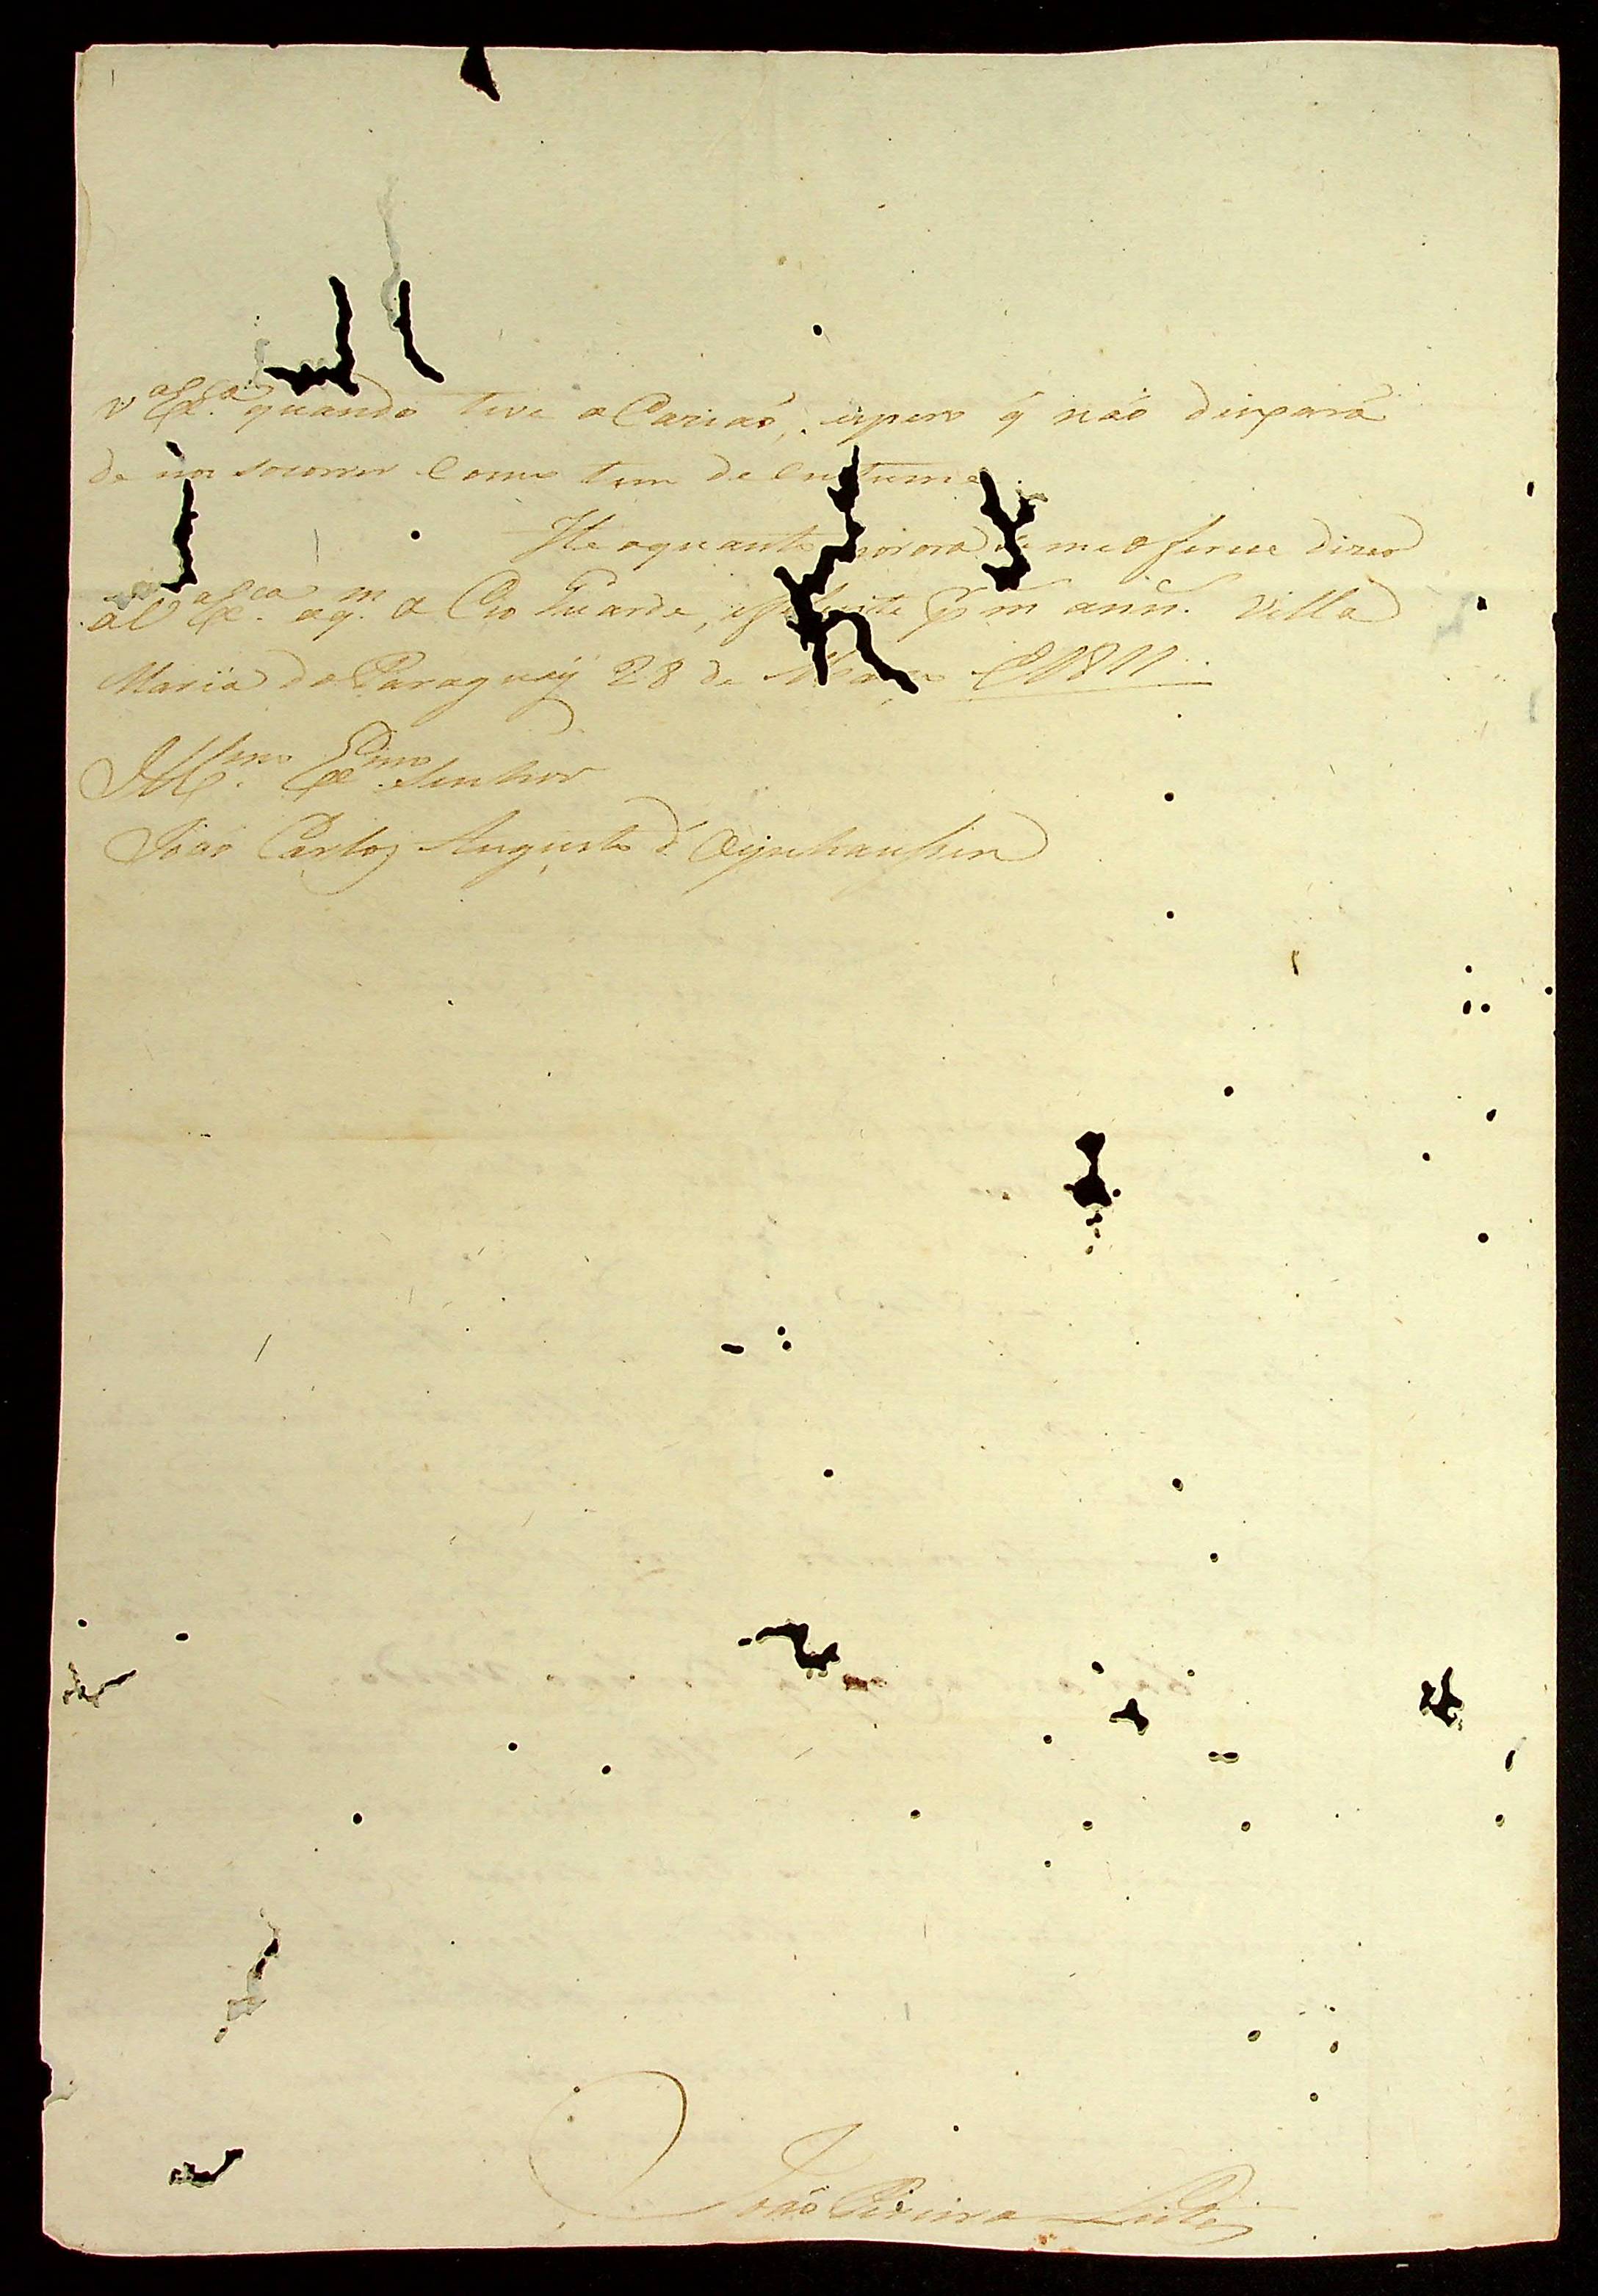 V.ª Ex.ª quando tive a Cazião, espero q̃ não dixpará
de nos socorrer Como tem de Custume.
He oquanto porora se me oferese dizer
a V.ª Ex.ca aq.m o Ceo Guarde, e felicite p.r m.s ann.s Villa
Maria do Paraguay 28 de Março de 1811
Ill.mo Ex.mo Senhor
João Carlos Augusto d'Oeynhaussen
João Pereira Leite